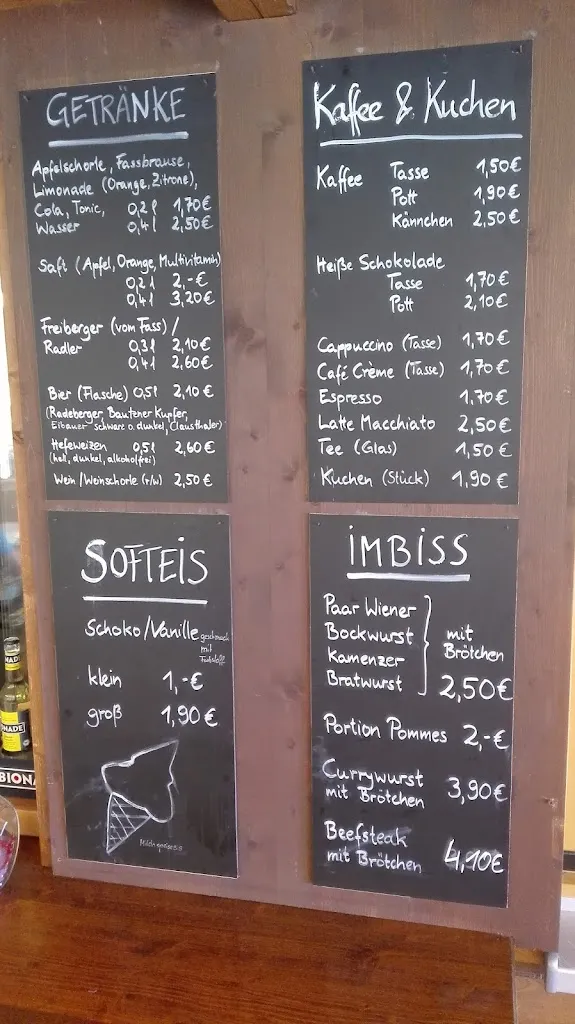 GETRÄNKE
Apfelschorle, Fassbrause,
Limonade (Orange, Zitrone),
Cola, Tonic, 0,2 l 1,70€
Wasser 0,4 l 2,50€
Saft (Apfel, Orange, Multivitamin)
0,2 l 2,-€
0,4 l 3,20€
Freiberger (vom Fass) /
Radler 0,3 l 2,10€
0,4 l 2,60€
Bier (Flasche) 0,5 l 2,10€
(Radeberger, Bautzner Kupfer,
Eibauer schwarz o. dunkel, Clausthaler)
Hefeweizen 0,5 l 2,60€
(hell, dunkel, alkoholfrei)
Wein/Weinschorle (r/w) 2,50€
Kaffee & Kuchen
Kaffee Tasse 1,50€
Pott 1,90€
Kännchen 2,50€
Heiße Schokolade
Tasse 1,70€
Pott 2,10€
Cappuccino (Tasse) 1,70€
Café Crème (Tasse) 1,70€
Espresso 1,70€
Latte Macchiato 2,50€
Tee (Glas) 1,50€
Kuchen (Stück) 1,90€
SOFTEIS
Schoko/Vanille geschmack
mit
klein 1,-€
groß 1,90€
iMBiSS
Paar Wiener
Bockwurst
Kamenzer
Bratwurst
mit
Brötchen
2,50€
Portion Pommes 2,-€
Currywurst
mit Brötchen 3,90€
Beefsteak
mit Brötchen 4,10€
BIONA